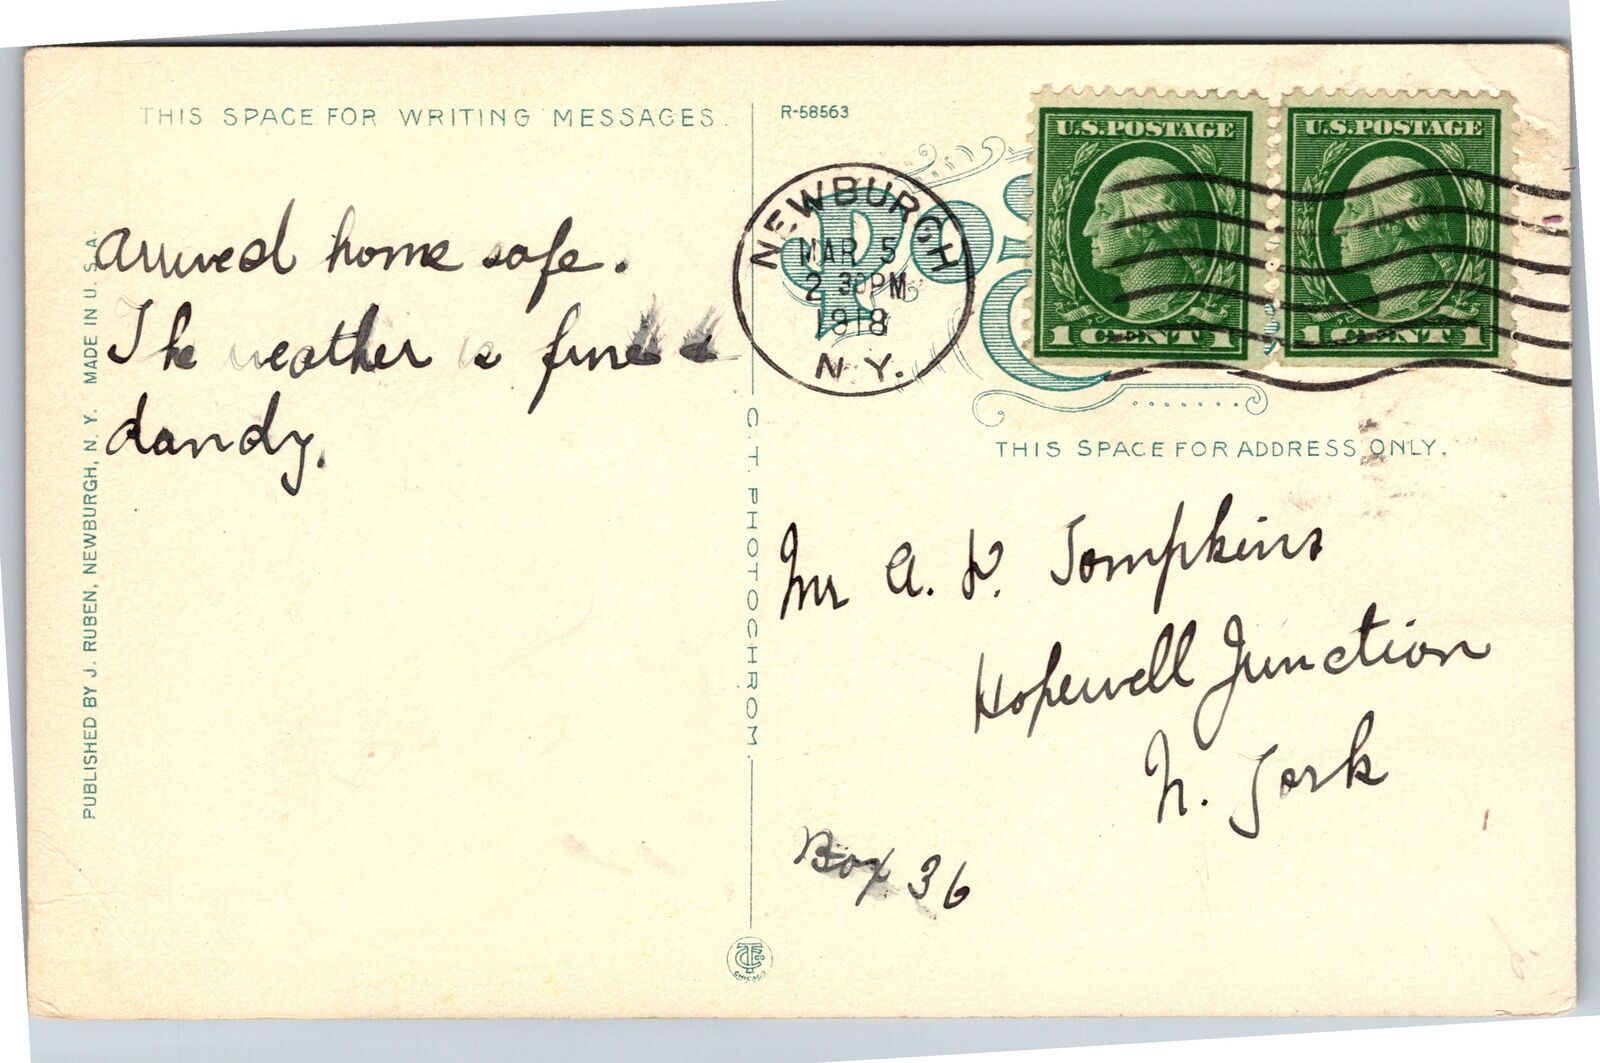 THIS SPACE FOR WRITING MESSAGES.
R-58563
U.S.POSTAGE
1 CENT 1
U.S.POSTAGE
1 CENT 1
NEWBURGH
MAR 5
2 30PM
1918
N.Y.
Arrived home safe.
The weather is fine &
dandy.
PUBLISHED BY J. RUBEN, NEWBURGH, N. Y. MADE IN U. S. A.
C. T. PHOTOCHROM.
THIS SPACE FOR ADDRESS ONLY.
Mr A. Tompkins
Hopewell Junction
N. York
Box 36
CHICAGO